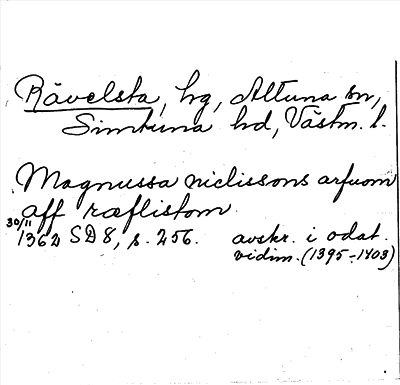 Rävelsta, hg, Altuna sn,
Simtuna hd, Västm. l.
Magnussa niclissons arfuom
aff ræflistom
30/11 1362 SD 8, s. 256. avskr. i odat.
vidim. (1395-1403)